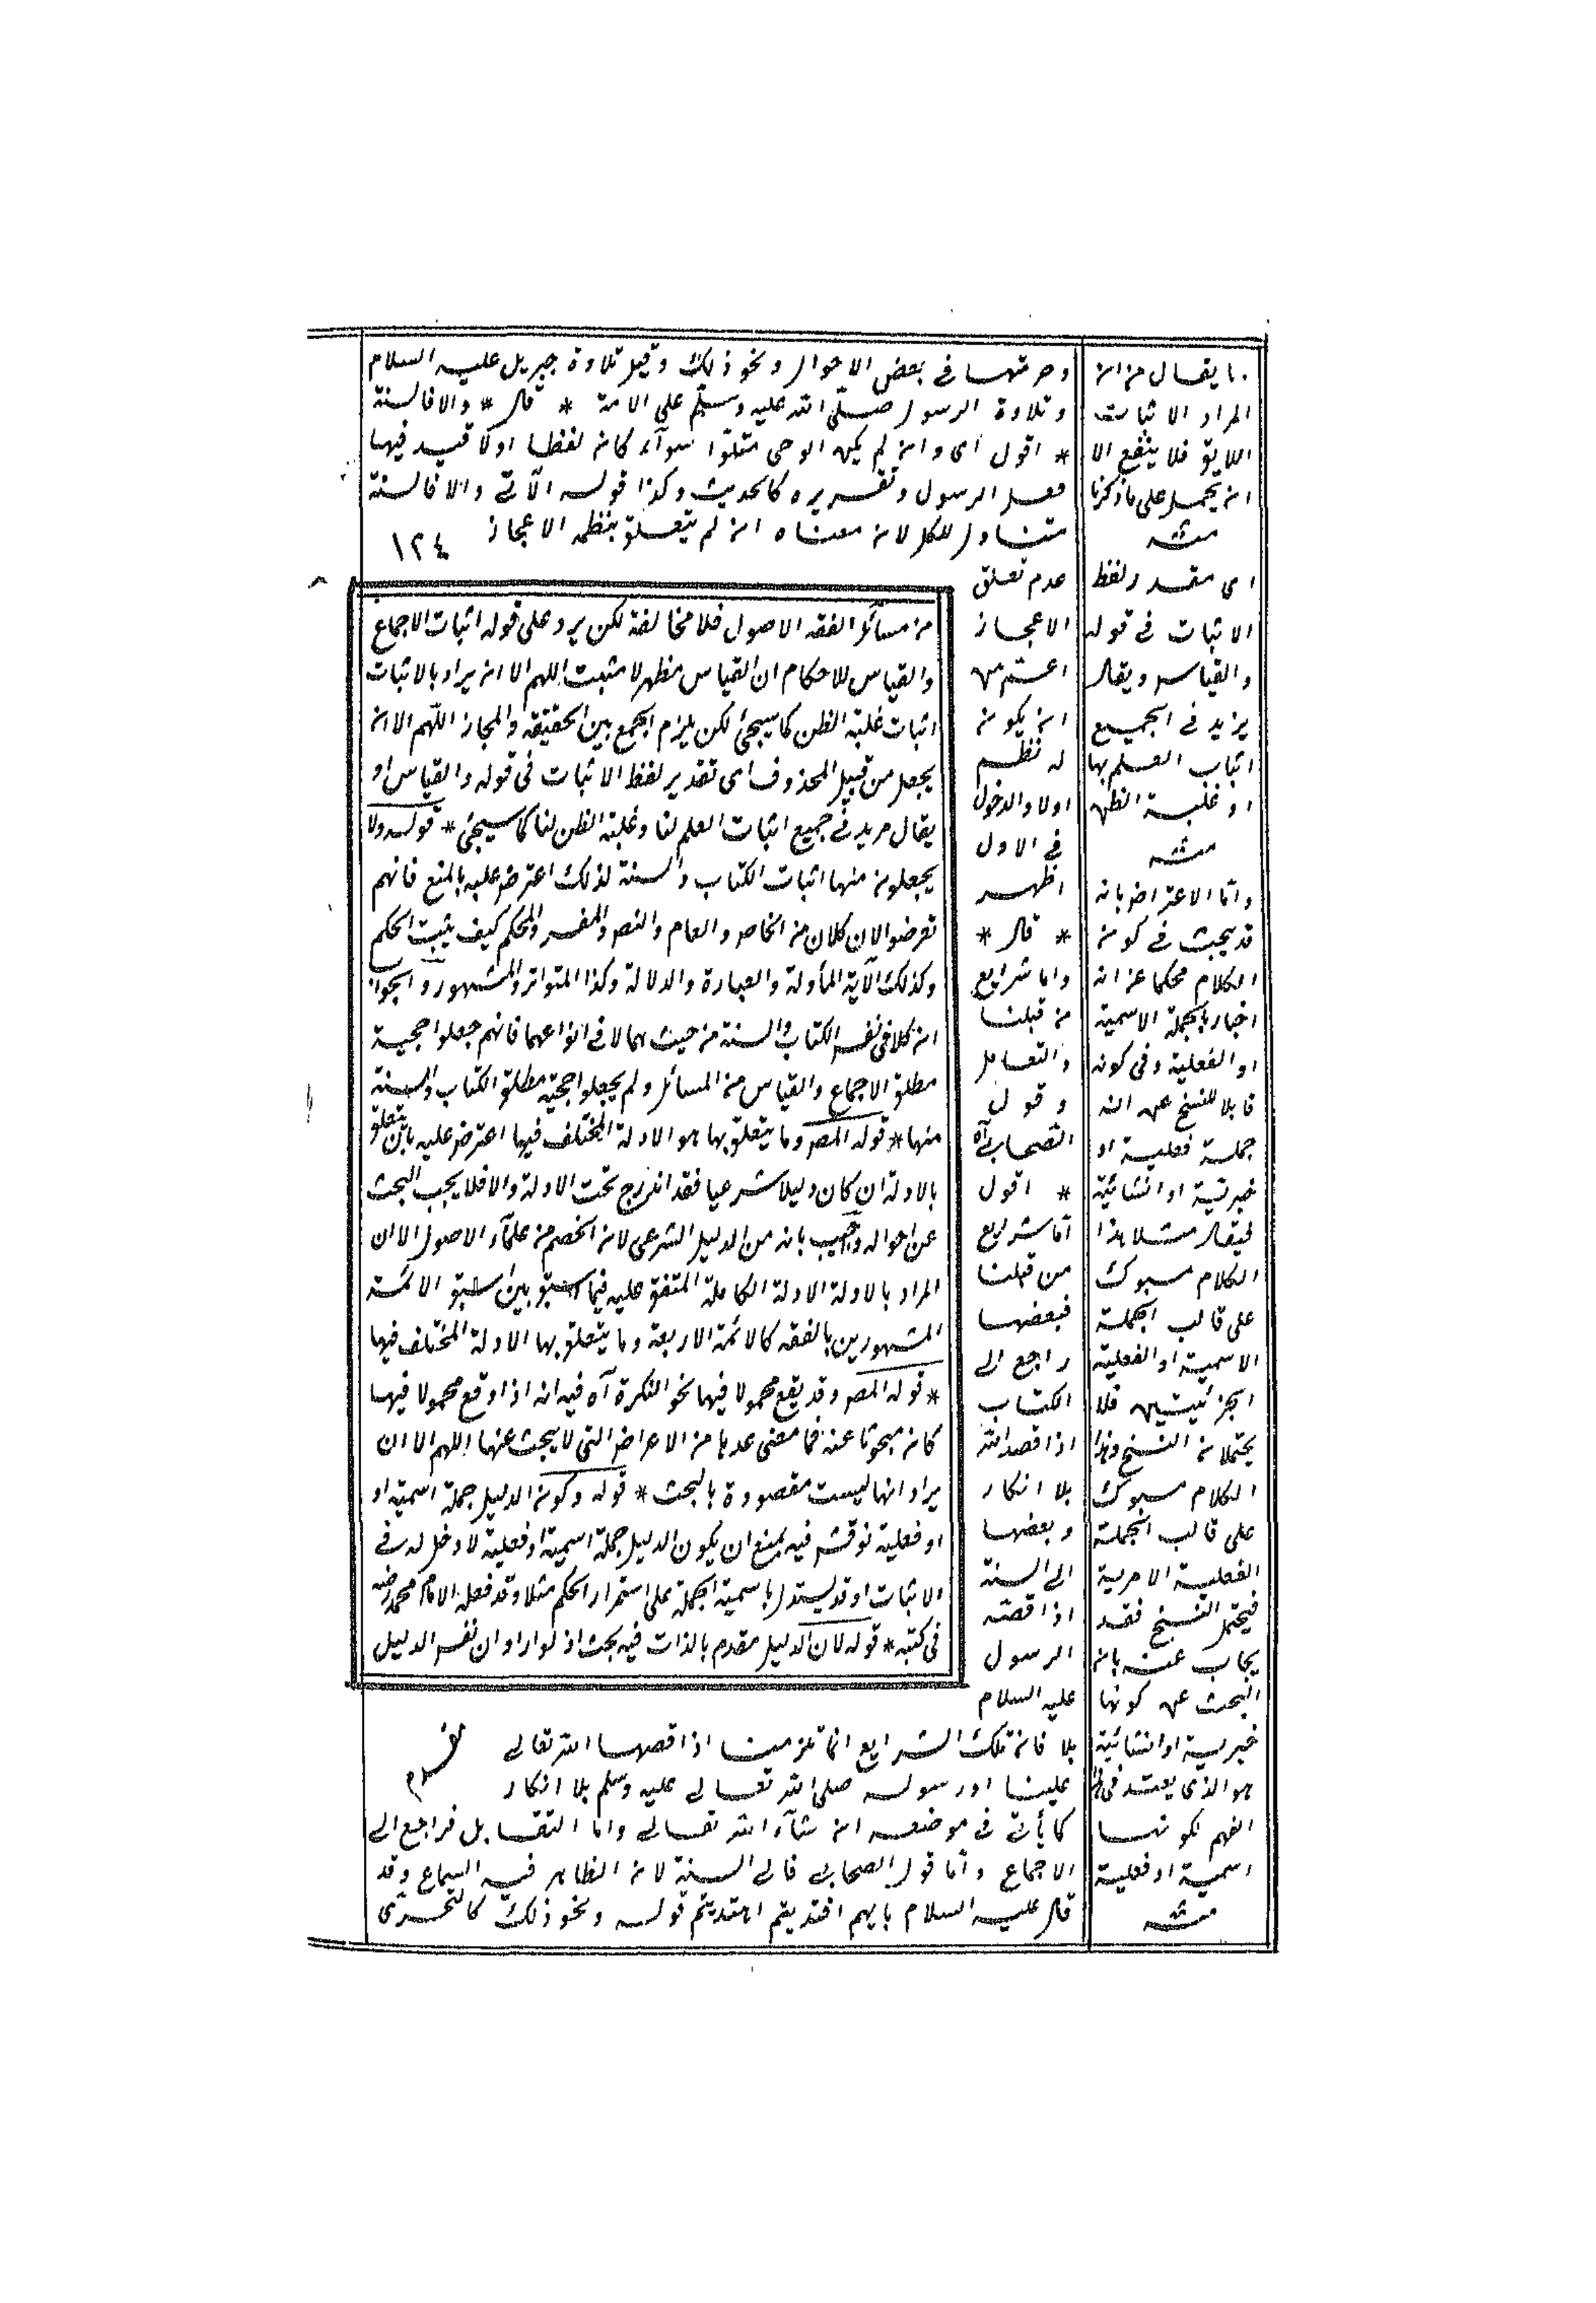 وحرمتها فى بعض الاحوال ونحو ذلك وقيل تلاوة جبريل عليه السلام
وتلاوة الرسول صلى الله عليه وسلم على الامة * قال * والا فالسنة
* اقول اى وان لم يكن الوحى متلوا سوآء كان لفظا اولا قيد فيها
فعل الرسول وتقريره كالحديث وكذا قوله الآتى والا فالسنة
متناول للكل لان معناه ان لم يتعلق بنظمه الاعجاز
١٢٤
عدم تعلق
الاعجاز
اعم من
ان يكون
له نظم
اولا والدخول
فى الاول
اظهر
* قال *
واما شرايع
من قبلنا
والتعامل
وقول
الصحابى آه
* اقول
اما شرايع
من قبلنا
فبعضها
راجع الى
الكتاب
اذا قصه الله
بلا انكار
وبعضها
الى السنة
اذا قصه
الرسول
عليه السلام
بلا فان تلك الشرايع انما تلزمنا اذا قصها الله تعالى
علينا او رسوله صلى الله تعالى عليه وسلم بلا انكار
كما يأتى فى موضعه ان شآء الله تعالى واما التعامل فراجع الى
الاجماع واما قول الصحابى فالى السنة لان الظاهر فيه السماع وقد
قال عليه السلام بايهم اقتديتم اهتديتم قوله ونحو ذلك كالتحرى
من مسائل الفقه الاصول فلا مخالفة لكن يرد على قوله اثبات الاجماع
والقياس للاحكام ان القياس مظهر لا مثبت اللهم الا ان يراد بالاثبات
اثبات غلبة الظن كما سيجئ لكن يلزم الجمع بين الحقيقة والمجاز اللهم الا ان
يجعل من قبيل المحذوف اى تقدير لفظ الاثبات فى قوله والقياس او
يقال مريد فى جميع اثبات العلم لنا وغلبة الظن لنا كما سيجئ * قوله ولا
يجعلون منها اثبات الكتاب والسنة لذلك اعترض عليه بالمنع فانهم
تعرضوا لان كلا من الخاص والعام والنص والمفسر والمحكم كيف يثبت الحكم
وكذلك الآية المأولة والعبارة والدلالة وكذا المتواتر والمشهور والجواب
ان كلامى نفس الكتاب والسنة من حيث هما لا فى انواعهما فانهم جعلوا حجية
مطلق الاجماع والقياس من المسائل ولم يجعلوا حجية مطلق الكتاب والسنة
منها * قوله المص وما يتعلق بها هو الادلة المختلف فيها اعترض عليه بان متعلق
بالادلة ان كان دليلا شرعيا فقد اندرج تحت الادلة والا فلا يجب البحث
عن احواله واجيب بانه من الدليل الشرعى لان الخصم من علمآء الاصول الا ان
المراد بالادلة الادلة الكاملة المتفق عليه فيما سبق بين الائمة
المشهورين بالفقه كالائمة الاربعة وما يتعلق بها الادلة المختلف فيها
* قوله المص وقد يقع محمولا فيها نحو النكرة آه فيه انه اذا وقع محمولا فيها
كان مبحوثا عنه فما معنى عدها من الاعراض التى لا يبحث عنها اللهم الا ان
يراد انها ليست مقصودة بالبحث * قوله وكون الدليل جملة اسمية او
او فعلية نوقش فيه بمنع ان يكون الدليل جملة اسمية او فعلية لا دخل له فى
الاثبات او قد يستدل باسمية الجملة على استمرار الحكم مثلا وقد فعله الامام محمد رضه
فى كتبه * قوله لان الدليل مقدم بالذات فيه بحث اذ لو اراد ان نفس الدليل
ما يقال من ان
المراد الاثبات
اللايق فلا ينفع الا
ان يحمل على ما ذكرنا
منه
اى مقدر لفظ
الاثبات فى قوله
والقياس ويقال
يزيد فى الجميع
اثبات العلم بها
او غلبة الظن
منه
واما الاعتراض بانه
قد يبحث فى كون
الكلام محكما عن انه
اخبار بالجملة الاسمية
او الفعلية وفى كونه
قابلا للنسخ عن انه
جملة فعلية او
خبرية او انشائية
فيقال مثلا هذا
الكلام مسبوك
على قالب الجملة
الاسمية او الفعلية
الجزئيتين فلا
يحتملان النسخ وهذا
الكلام مسبوك
على قالب الجملة
الفعلية الامرية
فيحتمل النسخ فقد
يجاب عنه بان
البحث عن كونها
خبرية او انشائية
هو الذى يعتد فى هذا
الفهم لكونها
اسمية او فعلية
منه